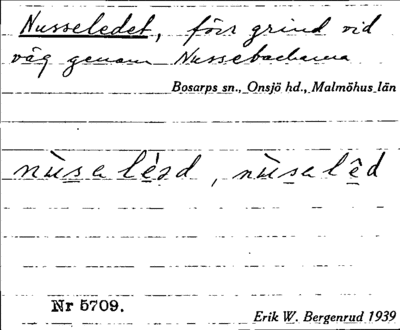 Nusseledet, förr grind vid
väg genom Nussebackarna
Bosarps sn., Onsjö hd., Malmöhus län
nùsalèsd, nùsalêd
Nr 5709.
Erik W. Bergenrud 1939